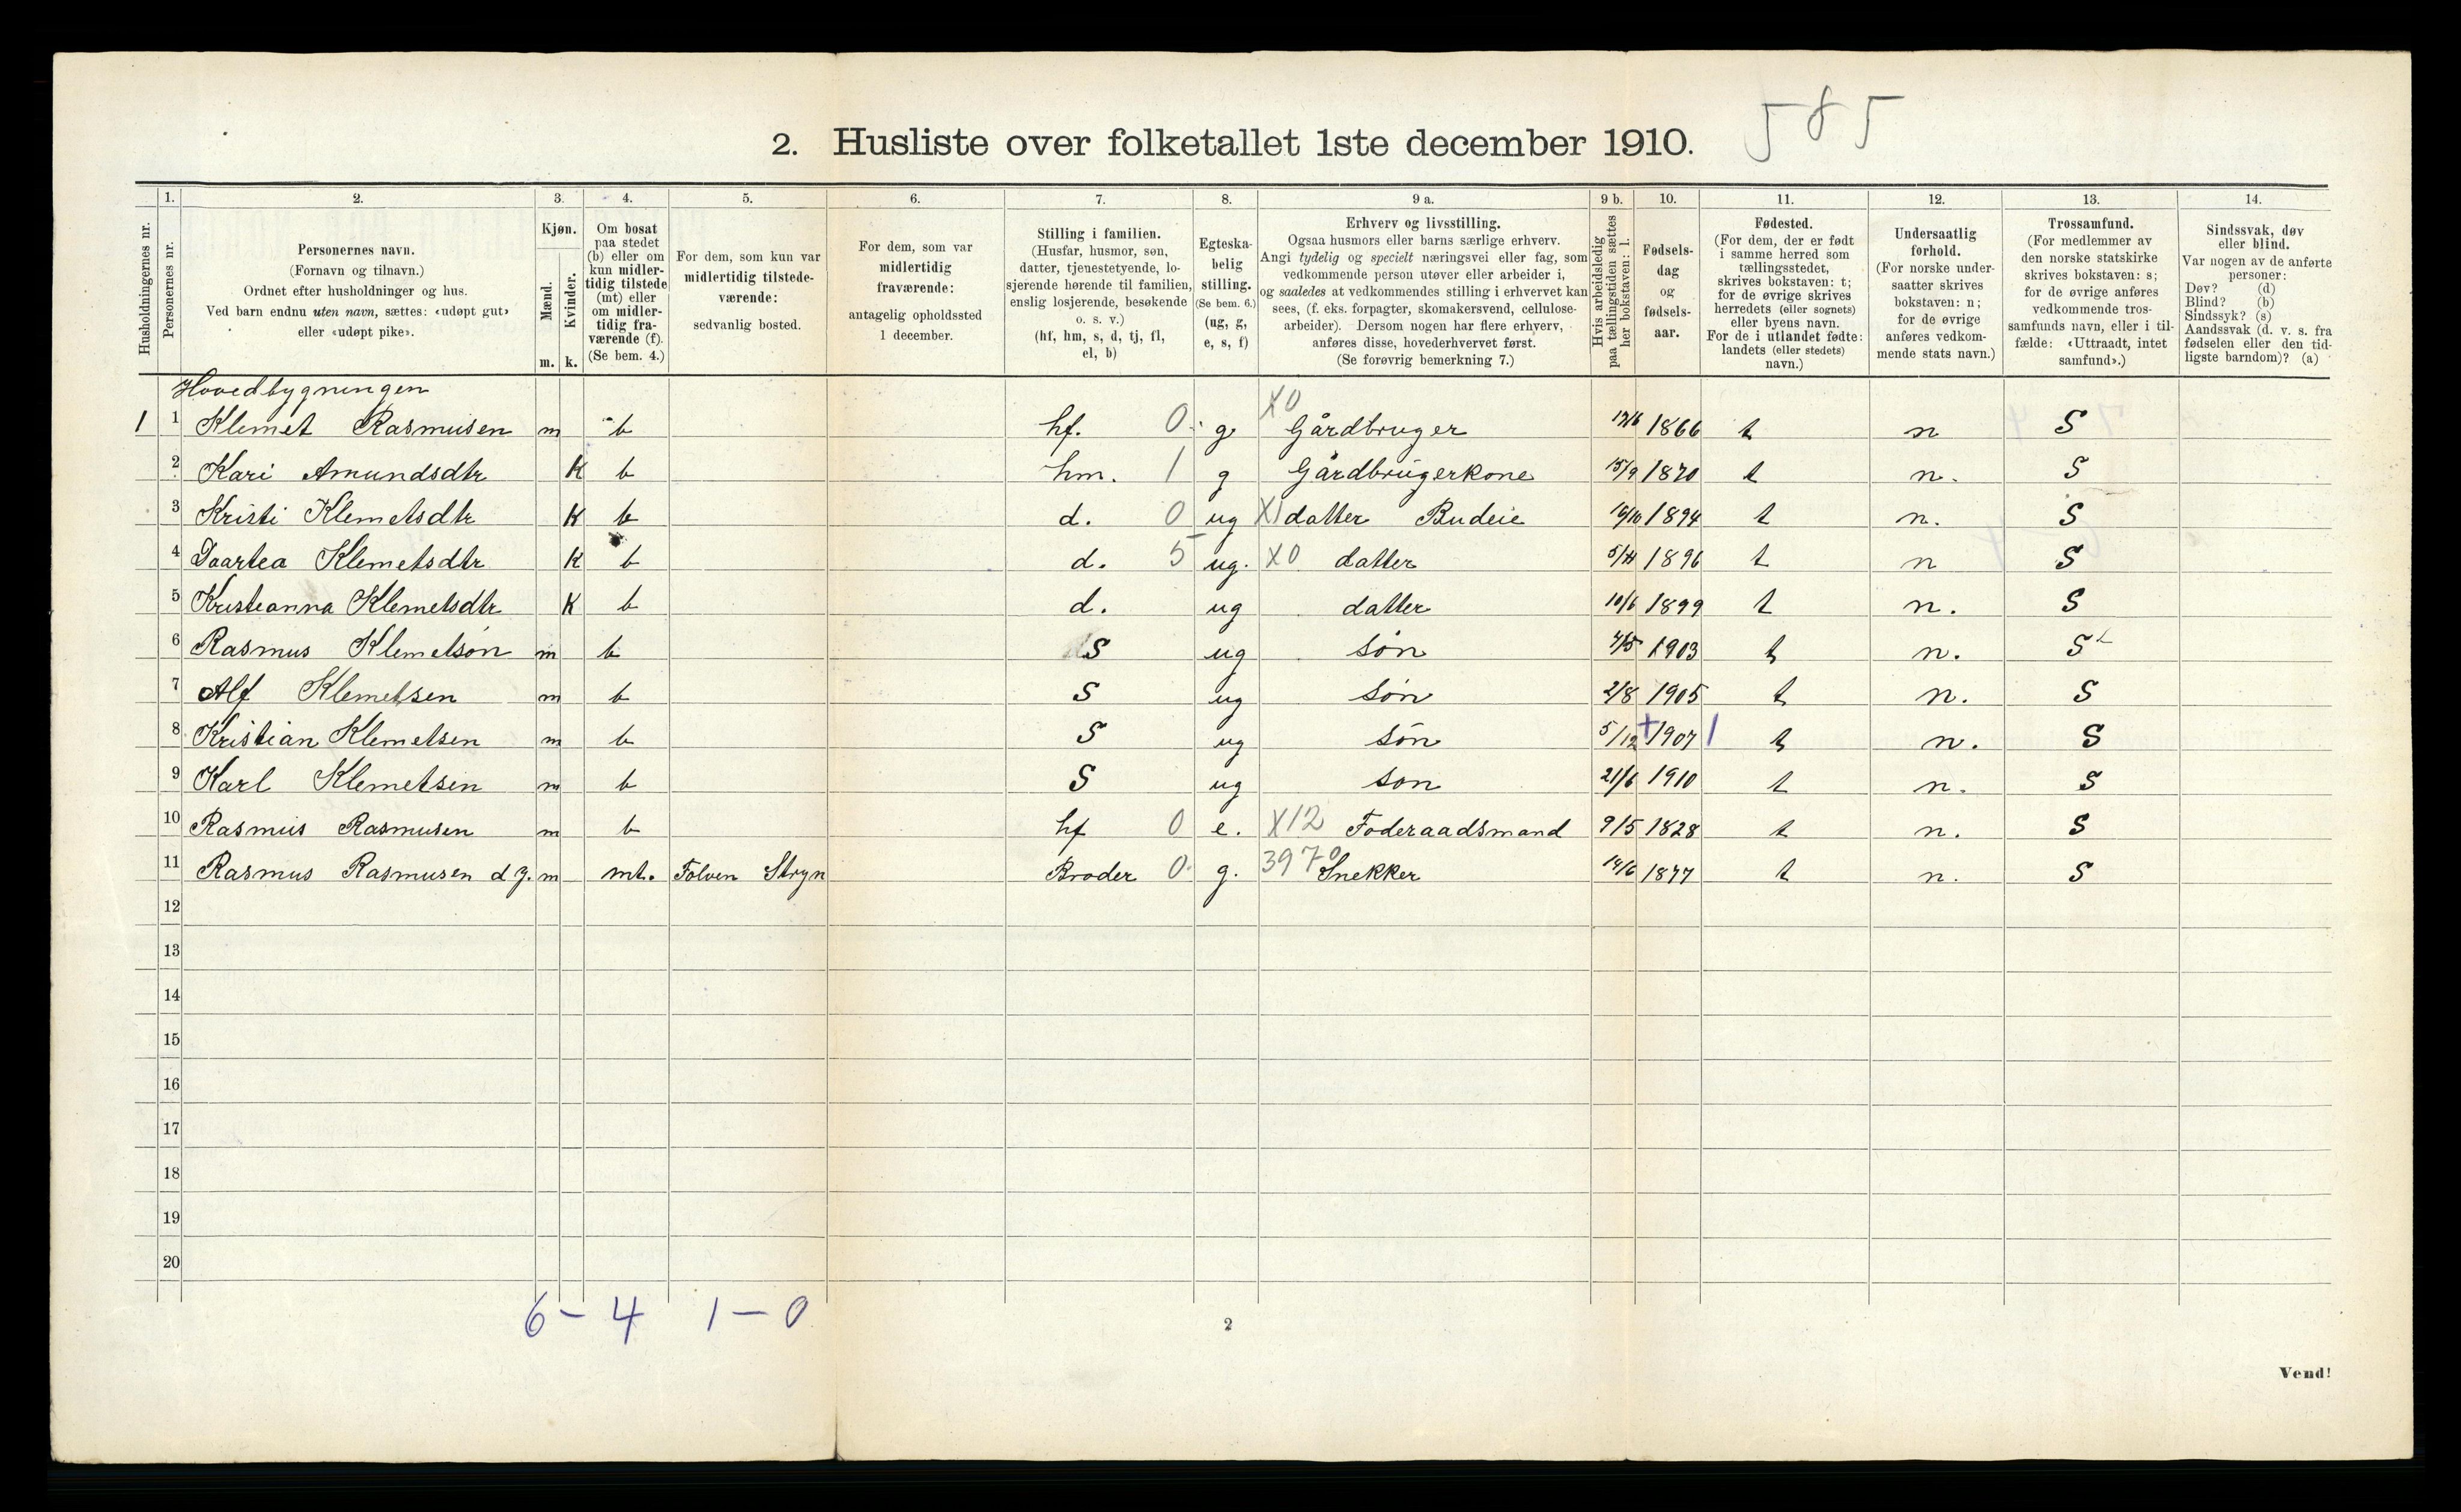 2. Husliste over folketallet 1ste december 1910. 585
1. 2. 3. 4. 5. 6. 7. 8. 9 a. 9 b. 10. 11. 12. 13. 14.
Husholdningernes nr.
Personernes nr.
Personernes navn.
(Fornavn og tilnavn.)
Ordnet efter husholdninger og hus.
Ved barn endnu uten navn, sættes: «udøpt gut»
eller «udøpt pike».
Kjøn.
Mænd.
Kvinder.
m. k.
Om bosat
paa stedet
(b) eller om
kun midler-
tidig tilstede
(mt) eller
om midler-
tidig fra-
værende (f).
(Se bem. 4.)
For dem, som kun var
midlertidig tilstede-
værende:
sedvanlig bosted.
For dem, som var
midlertidig
fraværende:
antagelig opholdssted
1 december.
Stilling i familien.
(Husfar, husmor, søn,
datter, tjenestetyende, lo-
sjerende hørende til familien,
enslig losjerende, besøkende
o. s. v.)
(hf, hm, s, d, tj, fl,
el, b)
Egteska-
belig
stilling.
(Se bem. 6.)
(ug, g,
e, s, f)
Erhverv og livsstilling.
Ogsaa husmors eller barns særlige erhverv.
Angi tydelig og specielt næringsvei eller fag, som
vedkommende person utøver eller arbeider i,
og saaledes at vedkommendes stilling i erhvervet kan
sees, (f. eks. forpagter, skomakersvend, cellulose-
arbeider). Dersom nogen har flere erhverv,
anføres disse, hovederhvervet først.
(Se forøvrig bemerkning 7.)
Hvis arbeidsledig
paa tællingstiden sættes
her bokstaven: l.
Fødsels-
dag
og
fødsels-
aar.
Fødested.
(For dem, der er født
i samme herred som
tællingsstedet,
skrives bokstaven: t;
for de øvrige skrives
herredets (eller sognets)
eller byens navn.
For de i utlandet fødte:
landets (eller stedets)
navn.)
Undersaatlig
forhold.
(For norske under-
saatter skrives
bokstaven: n;
for de øvrige
anføres vedkom-
mende stats navn.)
Trossamfund.
(For medlemmer av
den norske statskirke
skrives bokstaven: s;
for de øvrige anføres
vedkommende tros-
samfunds navn, eller i til-
fælde: «Uttraadt, intet
samfund».)
Sindssvak, døv
eller blind.
Var nogen av de anførte
personer:
Døv? (d)
Blind? (b)
Sindssyk? (s)
Aandssvak (d. v. s. fra
fødselen eller den tid-
ligste barndom)? (a)
Hovedbygningen
1 1 Klemet Rasmusen m b hf. 0 g X0 Gårdbruger 1866 t n S
2 Kari Amundsdtr K b hm. 1 g Gårdbrugerkone 15/9 1870 t n. S
3 Kristi Klemetsdtr K b d. 0 ug X1 datter Budeie 1894 t n. S
4 Daartea Klemetsdtr K b d. 5 ug. X0 datter 1896 t n S
5 Kristeanna Klemetsdtr K b d. ug datter 10/6 1899 t n. S
6 Rasmus Klemetson m b S ug søn 1903 t n. S
7 Alf Klemetsen m b S ug søn 2/8 1905 t n. S
8 Kristian Klemetsen m b S ug søn 5/12 + 1907 1 t n. S
9 Karl Klemetsen m b S ug søn 21/6 1910 t n. S
10 Rasmus Rasmusen m b hf 0 e. X12 Foderaadsmand 9/5 1828 t n. S
11 Rasmus Rasmusen d y. m mt. Folven Stryn Broder 0 g. 3970 Snekker 14/6 1877 t n. S
12
13
14
15
16
17
18
19
20
6 – 4 1 – 0
2
Vend!